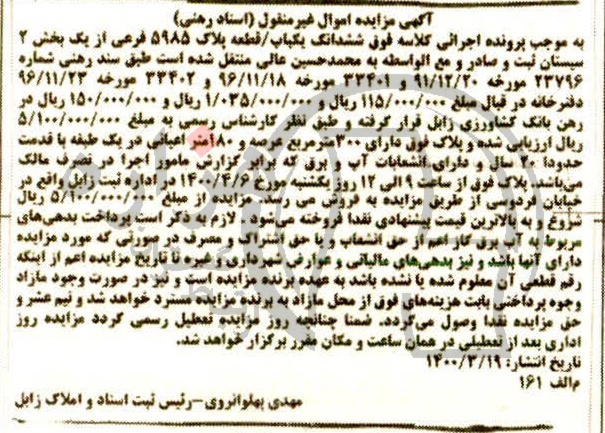 آگهی مزایده اموال غیرمنقول (اسناد رهنی)
به موجب پرونده اجرائی کلاسه فوق ششدانگ یکباب/قطعه پلاک ۵۹۸۵ فرعی از یک بخش ۲
سیستان ثبت و صادر و مع الواسطه به محمدحسین عالی منتقل شده است طبق سند رهنی شماره
۲۳۷۹۶ مورخه ۹۱/۱۲/۲۰ و ۳۳۴۰۱ مورخه ۹۶/۱۱/۱۸ و ۳۳۴۰۲ مورخه ۹۶/۱۱/۲۳
دفترخانه در قبال مبلغ ۱۱۵/۰۰۰/۰۰۰ ریال و ۱/۰۳۵/۰۰۰/۰۰۰ ریال و ۱۵۰/۰۰۰/۰۰۰ ریال در
رهن بانک کشاورزی زابل قرار گرفته و طبق نظر کارشناس رسمی به مبلغ ۵/۱۰۰/۰۰۰/۰۰۰
ریال ارزیابی شده و پلاک فوق دارای ۳۰۰مترمربع عرصه و ۱۸۰متر اعیانی در یک طبقه با قدمت
حدودا ۲۰ سال و دارای انشعابات آب و برق که برابر گزارش مامور اجرا در تصرف مالک
می‌باشد. پلاک فوق از ساعت ۹ الی ۱۲ روز یکشنبه مورخ ۱۴۰۰/۴/۶ در اداره ثبت زابل واقع در
خیابان فردوسی از طریق مزایده به فروش می رسد. مزایده از مبلغ ۵/۱۰۰/۰۰۰/۰۰۰ ریال
شروع و به بالاترین قیمت پیشنهادی نقدا فروخته می‌شود . لازم به ذکر است پرداخت بدهی‌های
مربوط به آب برق گاز اعم از حق انشعاب و یا حق اشتراک و مصرف در صورتی که مورد مزایده
دارای آنها باشد و نیز بدهی‌های مالیاتی و عوارض شهرداری و غیره تا تاریخ مزایده اعم از اینکه
رقم قطعی آن معلوم شده یا نشده باشد به عهده برنده مزایده است و نیز در صورت وجود مازاد
وجوه پرداختی بابت هزینه‌های فوق از محل مازاد به برنده مزایده مسترد خواهد شد و نیم عشر و
حق مزایده نقدا وصول می‌گردد. ضمنا چنانچه روز مزایده تعطیل رسمی گردد مزایده روز
اداری بعد از تعطیلی در همان ساعت و مکان مقرر برگزار خواهد شد.
تاریخ انتشار: ۱۴۰۰/۳/۱۹
م‌الف ۱۶۱
مهدی پهلوانروی –رئیس ثبت اسناد و املاک زابل